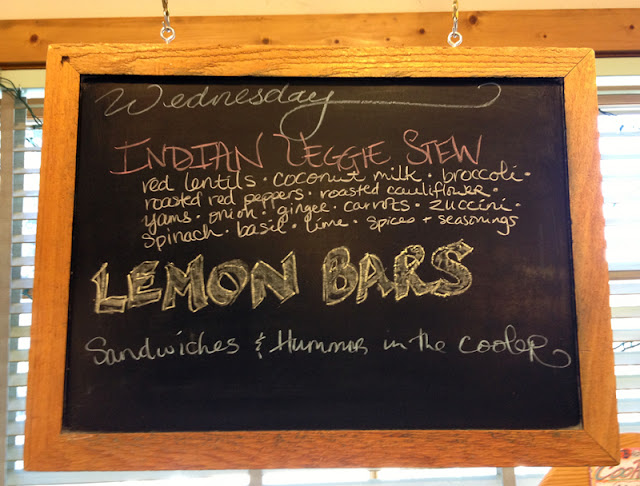 Wednesday
INDIAN VEGGIE STEW
red lentils · coconut milk · broccoli ·
roasted red peppers · roasted cauliflower ·
yams · onion · ginger · carrots · zuccini ·
spinach · basil · lime · spices + seasonings
LEMON BARS
Sandwiches & Hummus in the cooler